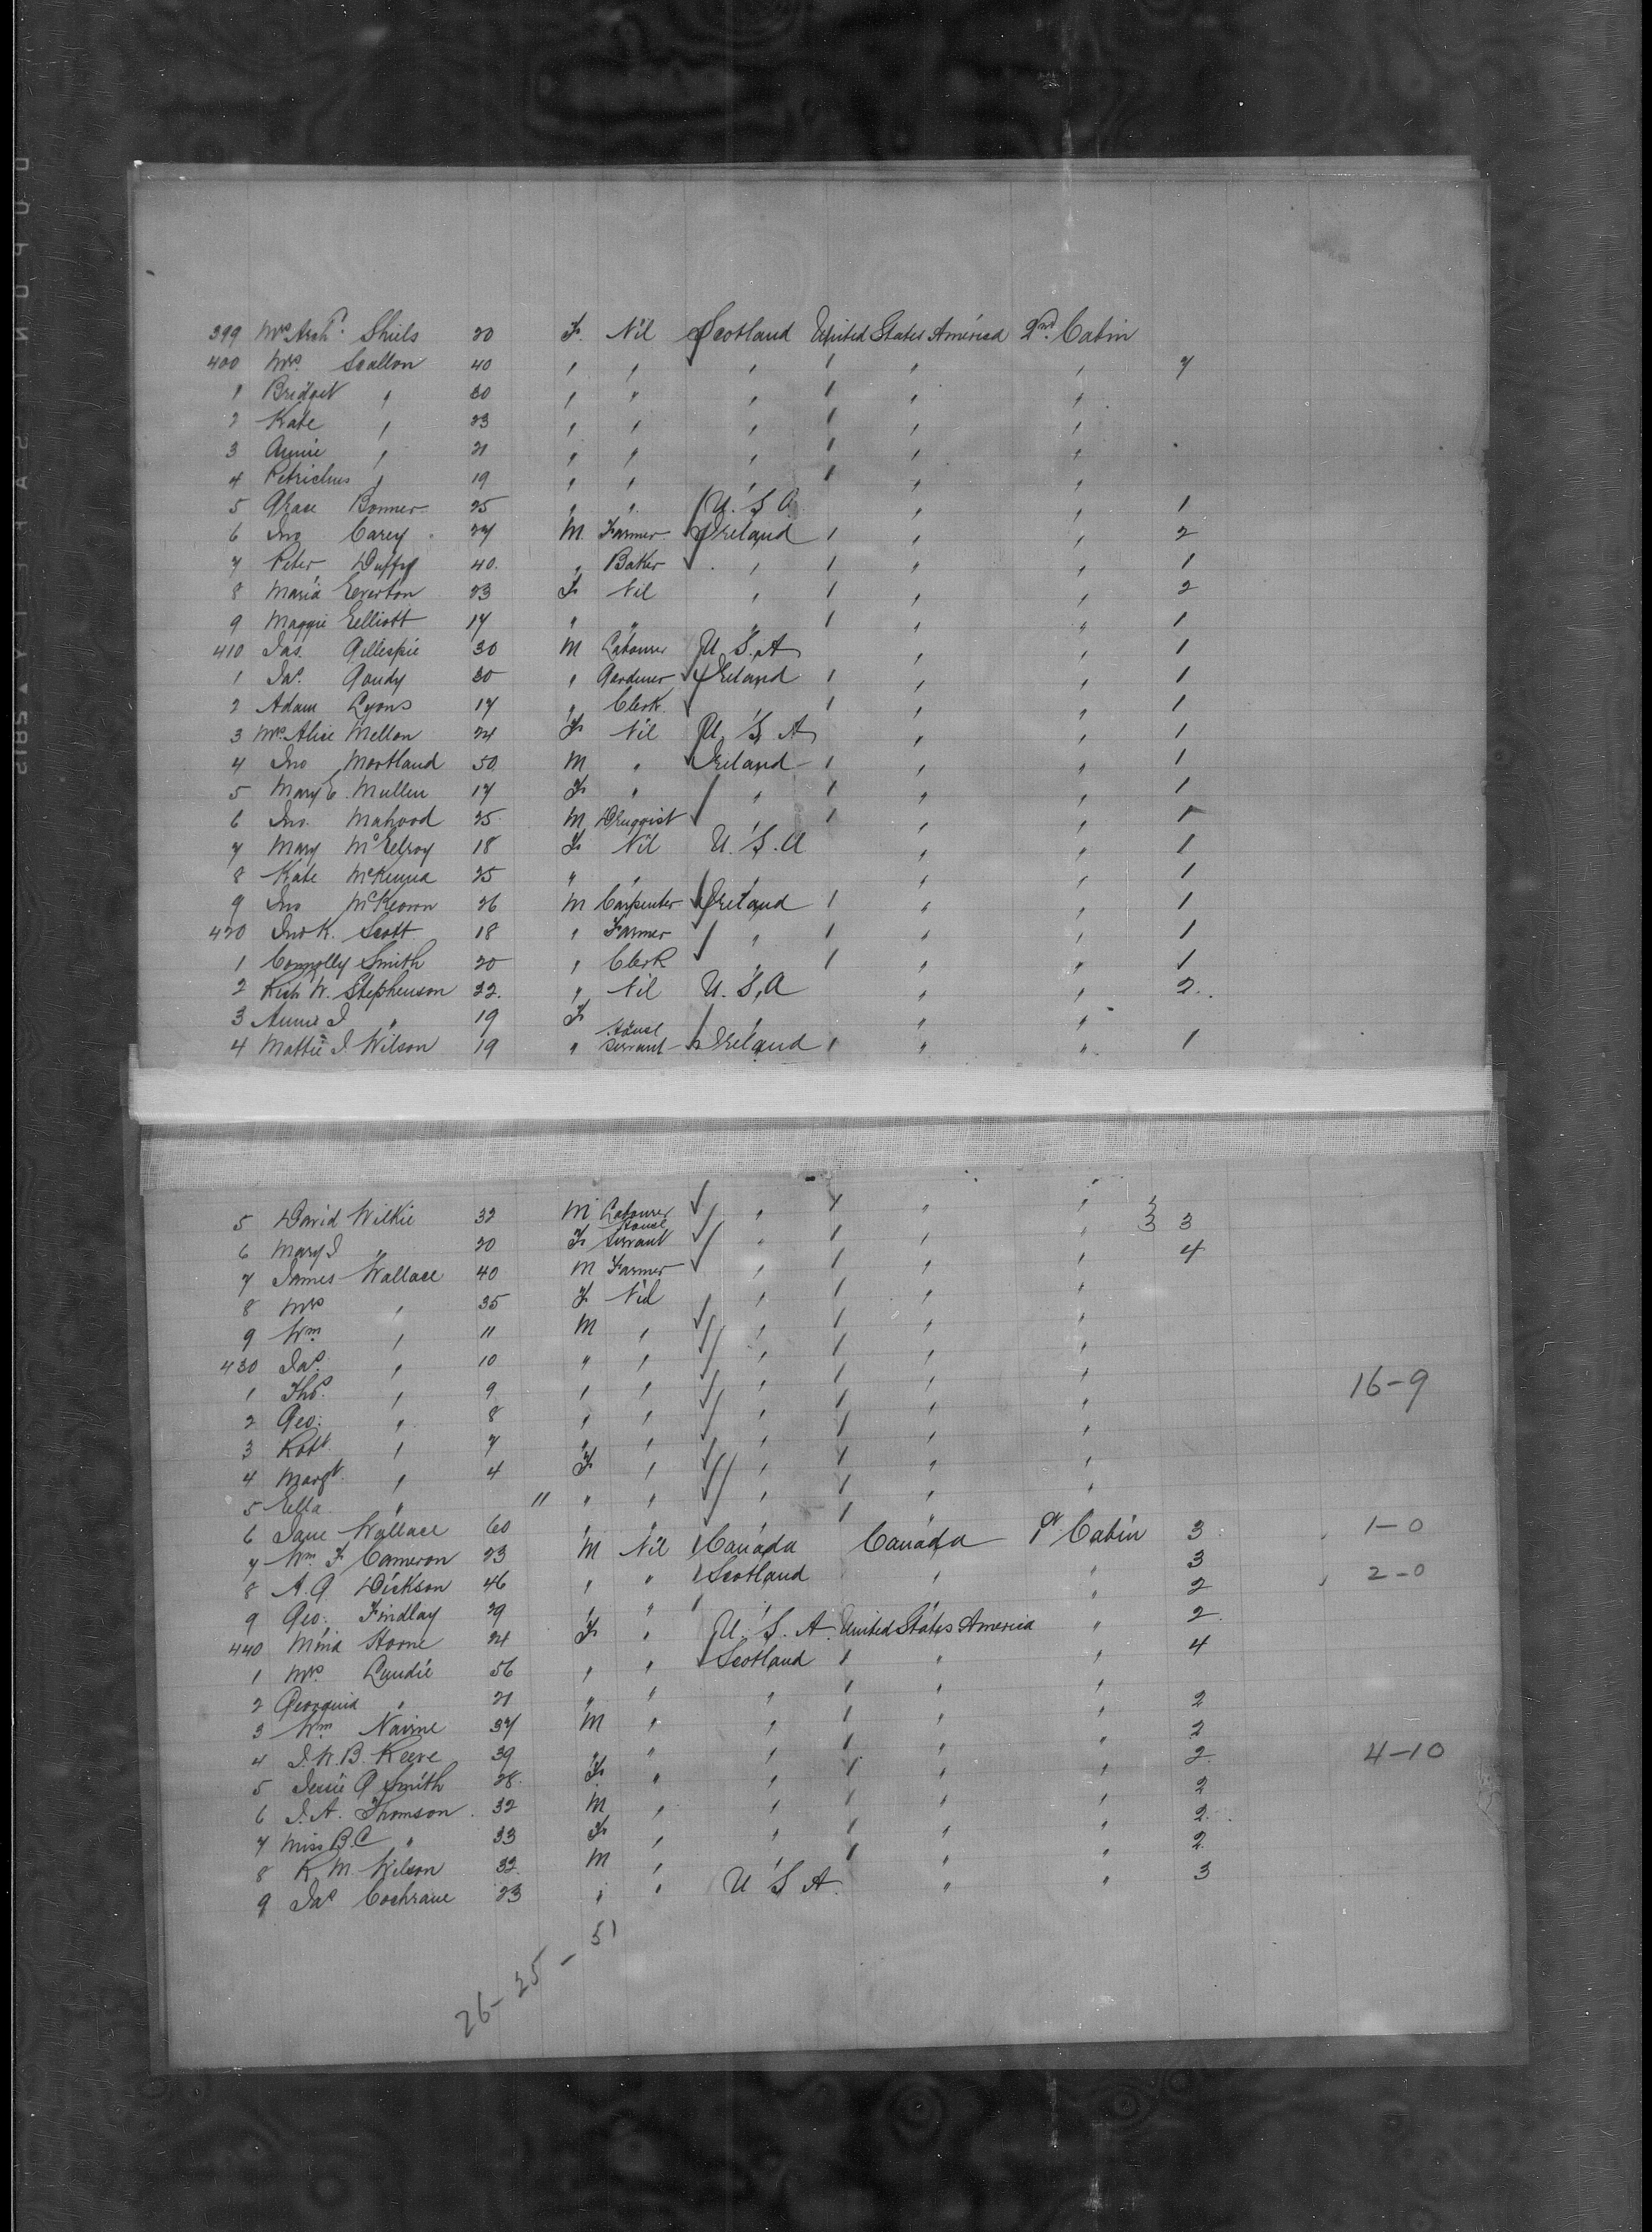 399 Mrs Archd. Shiels 20 F. Nil Scotland United States America 2nd. Cabin
400 Mrs. Scallon 40 " " " " " " 7
1 Bridget " 30 " " " " " "
2 Kate " 23 " " " " " "
3 Annie " 21 " " " " " "
4 " 19 " " " " " "
5 Grace Bonner 25 " " U. S. A " " 1
6 Jno Carey 27 M Farmer Ireland " " " 2
7 Peter Duffy 40. " Baker " " " " 1
8 Maria Everton 23 F Nil " " " " 2
9 Maggie Elliott 17 " " " " " " 1
410 Jas. Gillespie 30 M Labourer U. S. A " " 1
1 Jas. Goudy 30 " Gardener Ireland " " " 1
2 Adam Lyons 17 " Clerk " " " " 1
3 Mrs. Alice Mellon 24 F Nil U. S. A " " 1
4 Jno Mortland 50 M " Ireland " " " 1
5 Mary E. Mullen 17 F " " " " " 1
6 Jno. Mahood 25 M Druggist " " " " 1
7 Mary McElroy 18 F Nil U. S. A " " 1
8 Kate McKenna 25 " " " " " 1
9 Jno McKeown 26 M Carpenter Ireland " " " 1
420 Jno K. Scott 18 " Farmer " " " " 1
1 Connolly Smith 20 " Clerk " " " " 1
2 Rich W. Stephenson 22. " Nil U. S. A " " 2.
3 Annie J " 19 F " " "
4 Mattie J Wilson 19 " House Servant Ireland " " " 1
5 David Wilkie 32 M Labourer " " " " 3 3
6 Mary J " 20 F House Servant " " " "
7 James Wallace 40 M Farmer " " " " 4
8 Mrs " 35 F Nil " " " "
9 Wm " 11 M " " " " "
430 Jas. " 10 " " " " " "
1 Thos. " 9 " " " " " " 16-9
2 Geo. " 8 " " " " " "
3 Robt " 7 " " " " " "
4 Margt. " 4 F " " " " "
5 Ella " 11 " " " " " "
6 Jane Wallace 60 " " " " " " 3
7 Wm. F Cameron 23 M Nil Canada Canada 1st Cabin 3 1-0
8 A. G Dickson 46 " " Scotland " " 2 2-0
9 Geo. Findlay 29 " " " " " 2.
440 Mina Horne 24 F " U. S. A. United States America " 4
1 Mrs. Lundie 56 " " Scotland " " "
2 Georgina " 21 " " " " " " 2
3 Wm Nairne 37 M " " " " " 2
4 J. W. B. Keeve 39 " " " " " " 2. 4-10
5 Jessie G Smith 28 F " " " " " 2
6 J. A. Thomson 32 M " " " " " 2.
7 Miss B. C " 33 F " " " " " 2
8 R M. Wilson 32. M " " " " " 3
9 Jas Cochrane 23 " " U S A " "
26-25-51